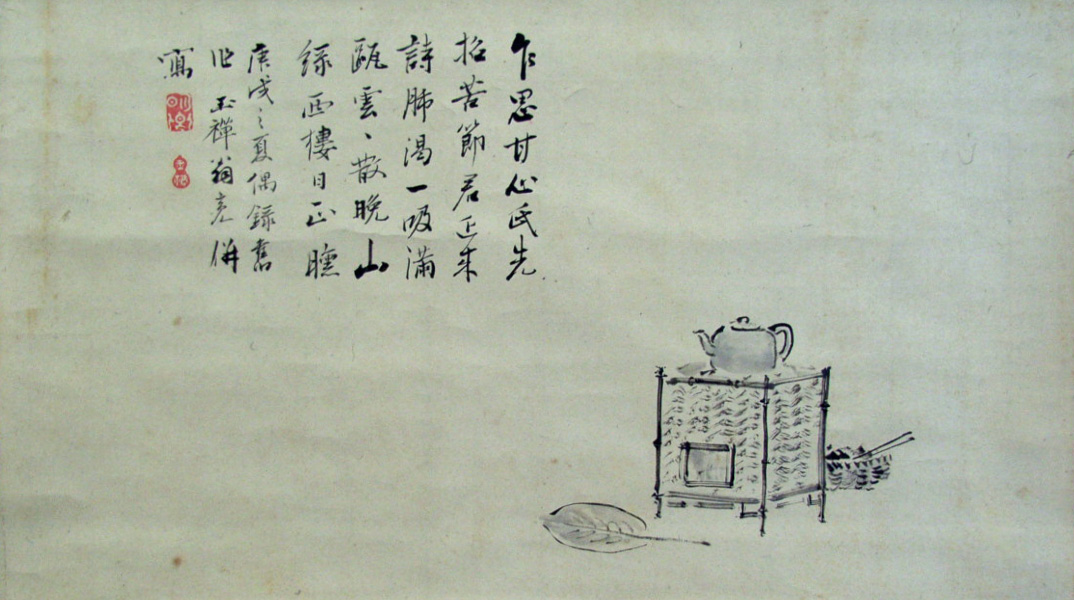 乍思甘心氏先
招苦節君正来
詩肺渇一吸满
甌雲〻散晩山
緑西樓日正曛
庚戌之夏偶録舊
作 玉禪翁 併
寫